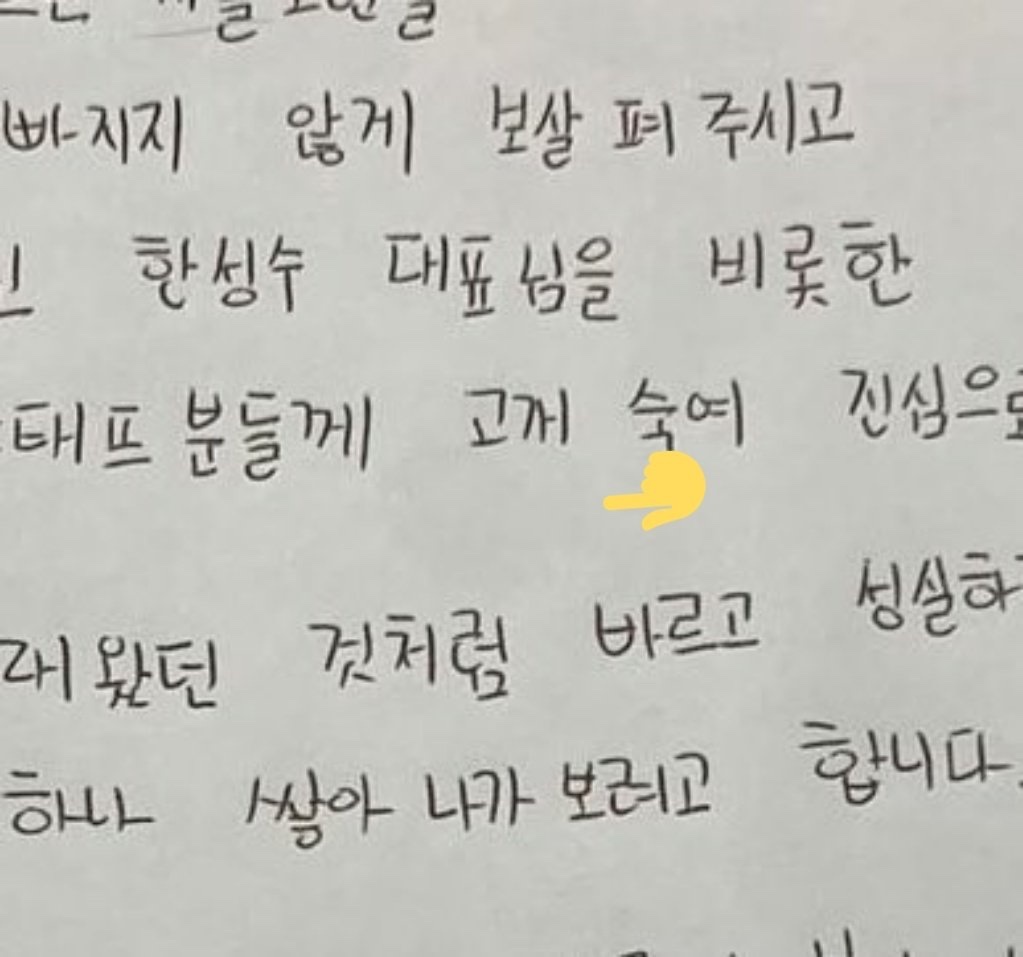 빠지지 않게 보살펴 주시고
한성수 대표님을 비롯한
태프 분들께 고개 숙여 진심으로
래왔던 것처럼 바르고 성실하
하나 쌓아 나가 보려고 합니다.